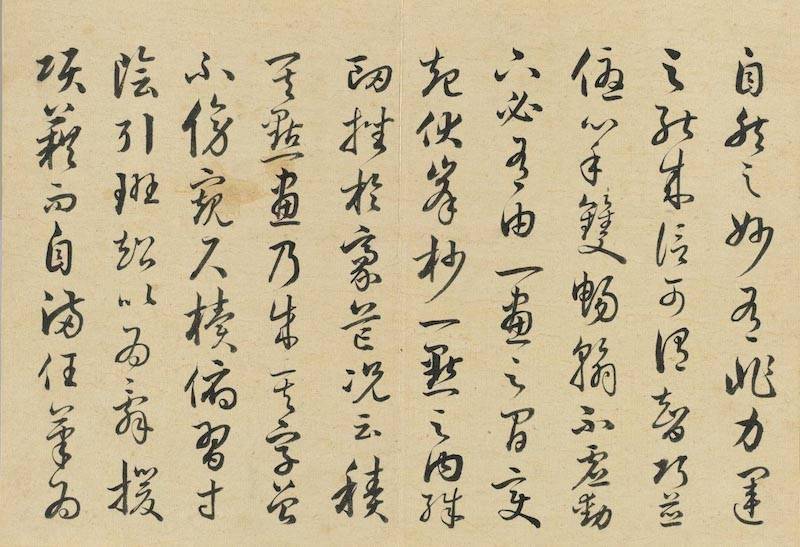 自然之妙有非力運
之能成信可謂智巧兼
優心手雙暢翰不虛動
下必有由一畫之間變
起伏峯杪一點之內殊
衄挫於豪芒況云積
其點畫乃成其字曾
不傍窺尺櫝俯習寸
陰引班超以為辭援
項籍而自滿任筆為